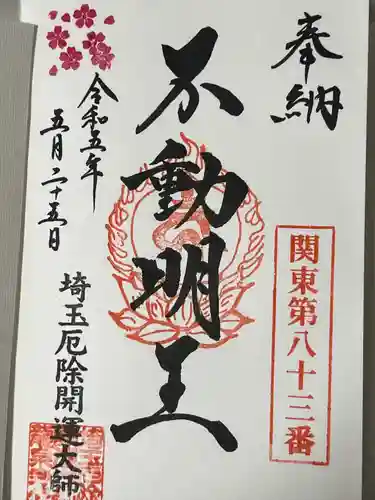 奉納
関東第八十三番
不動明王
令和五年
五月二十五日
埼玉厄除開運大師